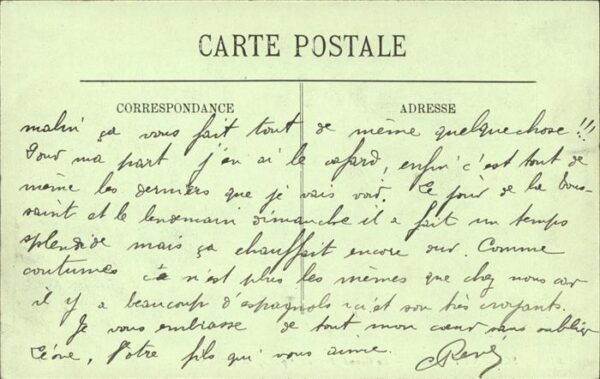 CARTE POSTALE
CORRESPONDANCE
ADRESSE
malin ça vous fait tout de même quelque chose !!!
Pour ma part j'en ai le cafard, enfin c'est tout de
même les derniers que je vais voir. Le jour de la Tous-
saint et le lendemain dimanche il a fait un temps
splendide mais ça chauffait encore dur. Comme
coutumes ce n'est plus les mêmes que chez nous car
il y a beaucoup d'espagnols ici et son très croyants.
Je vous embrasse de tout mon cœur sans oublier
Léone, Votre fils qui vous aime.
René